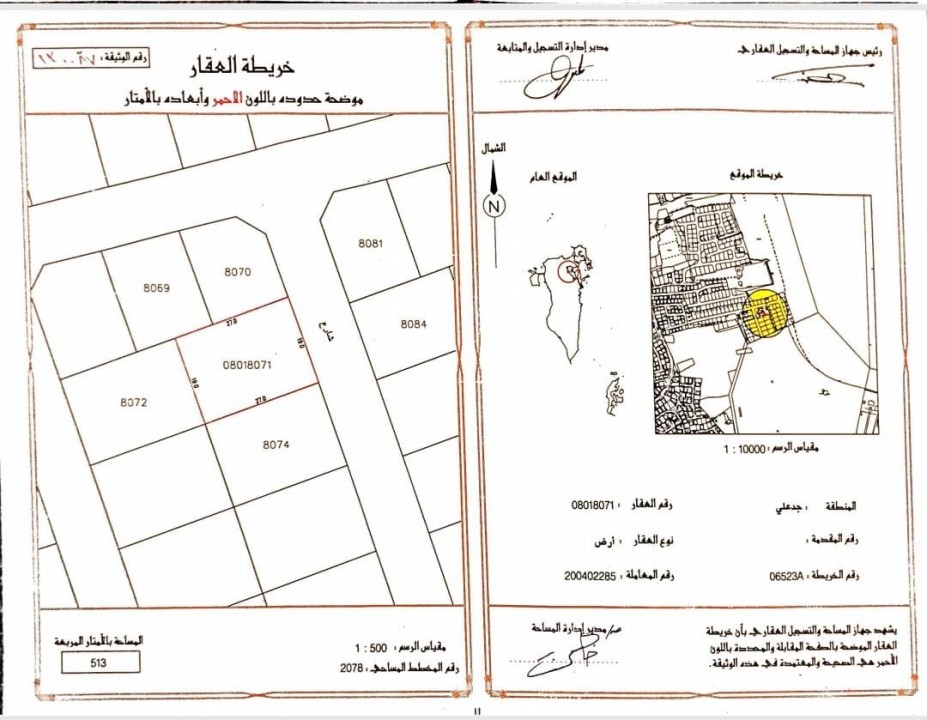 رئيس جهاز المساحة والتسجيل العقاري
مدير إدارة التسجيل والمتابعة
الشمال
N
الموقع العام
خريطة الموقع
مقياس الرسم : 10000 : 1
المنطقة : جدعلي
رقم العقار : 08018071
رقم المقدمة :
نوع العقار : أرض
رقم الخريطة : 06523A
رقم المعاملة : 200402285
يشهد جهاز المساحة والتسجيل العقاري بأن خريطة
العقار الموضحة بالصفحة المقابلة والمحددة باللون
الأحمر هي الصحيحة والمعتمدة في هذه الوثيقة.
مدير إدارة المساحة
رقم الوثيقة :
خريطة العقار
موضحة حدوده باللون الاحمر وأبعاده بالأمتار
8081
8070
8069
8084
27.0
شارع
19.0
08018071
19.0
27.0
8072
8074
المساحة بالأمتار المربعة
513
مقياس الرسم : 500 : 1
رقم المخطط المساحي : 2078
11